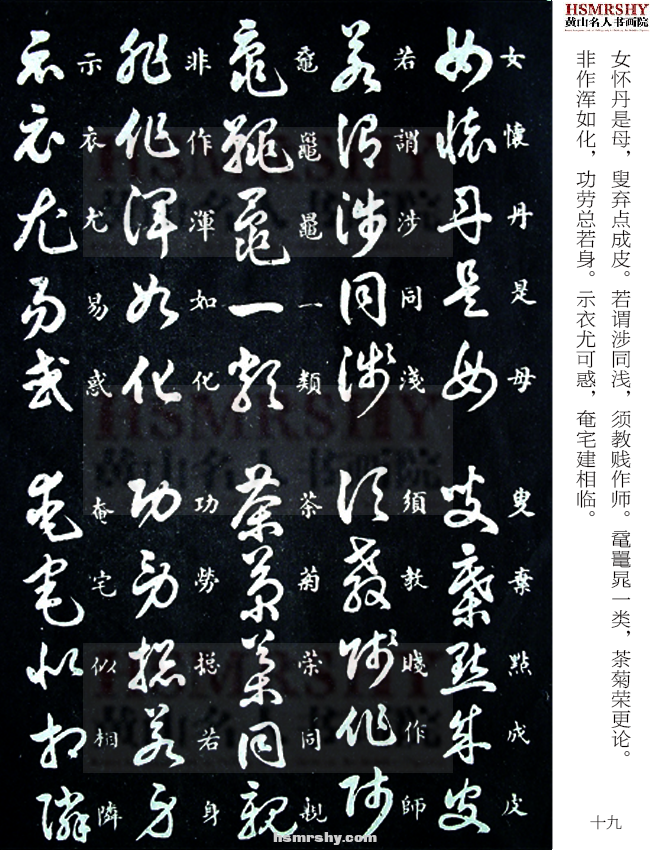 HSMRSHY
黄山名人书画院
女怀丹是母，叟弃点成皮。若谓涉同浅，须教贱作师。鼋鼍晁一类，茶菊荣更论。
非作浑如化，功劳总若身。示衣尤可惑，奄宅建相临。
女懷丹是母 叟棄點成皮
若謂涉同淺 須教賤作師
黿鼉鼂一類 茶菊榮同親
非作渾如化 功勞総若身
示衣尤易惑 奄宅似相隣
十九
hsmrshy.com